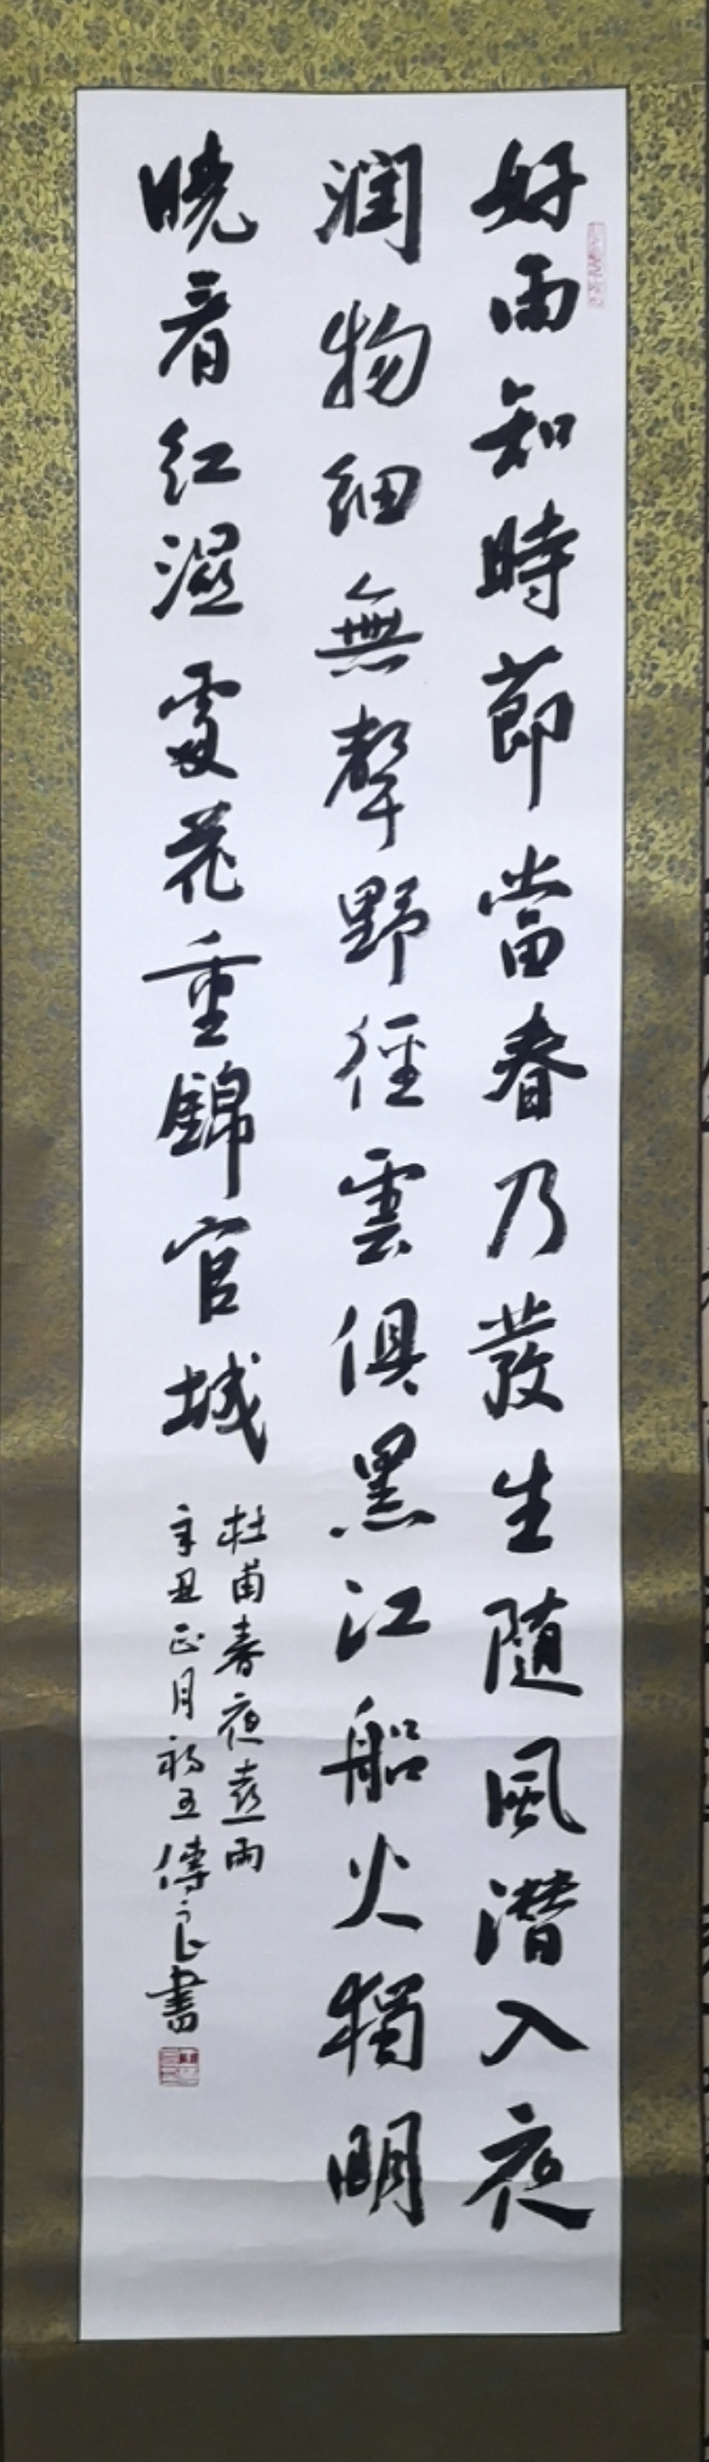 好雨知時節當春乃發生隨風潛入夜
潤物細無聲野徑雲俱黑江船火獨明
曉看紅濕處花重錦官城
杜甫春夜喜雨
辛丑正月初五傅良書